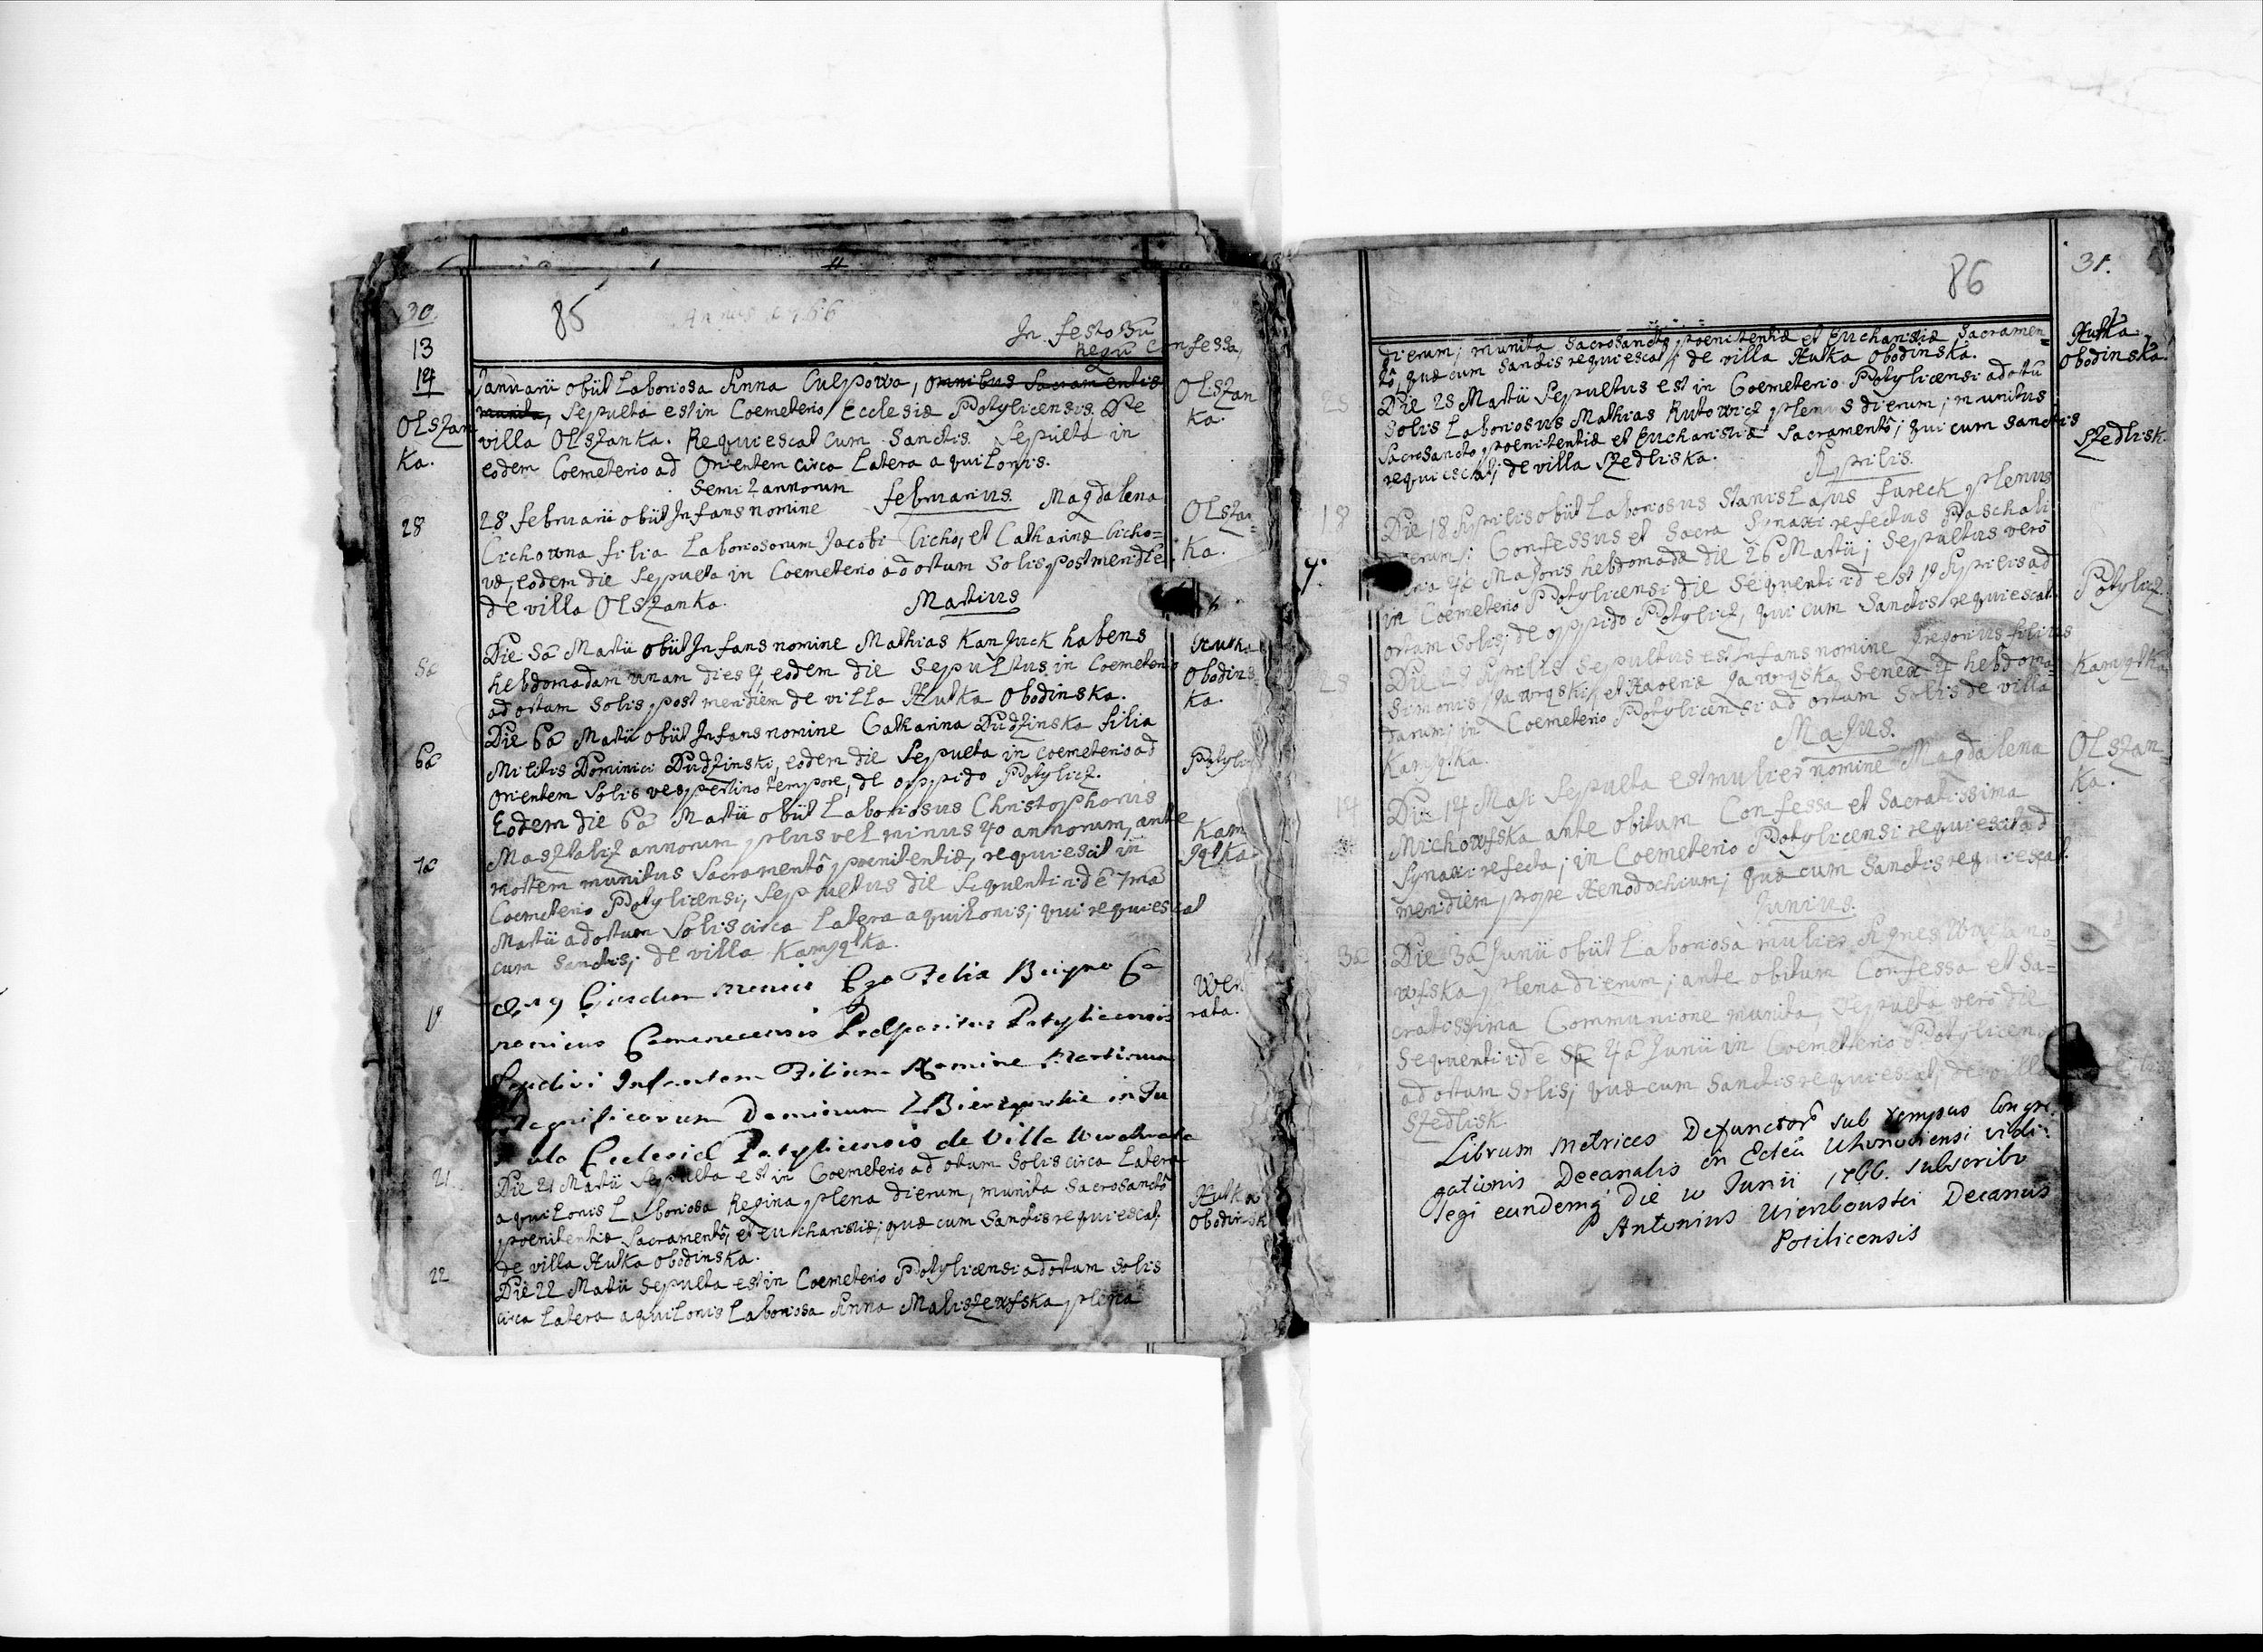 30.
85
Annus 1766
In festo 3ū
Regū Confessa,
13
14
Januarii obiit Laboriosa Anna Culpowa, omnibus Sacramentis
munita, Sepulta est in Coemeterio Ecclesiæ Potylicensis. De
villa Olszanka. Requiescat cum Sanctis Sepulta in
eodem Coemeterio ad Orientem circa Latera aquilonis.
Olszan
ka.
Olszan
ka.
Semi 2 annorum Februarius. Magdalena
28
28 Februarii obiit Infans nomine
Cichowna filia Laboriosorum Jacobi Cicho, et Catharinæ Cicho=
væ, eodem die Sepulta in Coemeterio ad ortum Solis post meridie
de villa Olszanka.
Olszan=
ka.
Martius
5a
Die 5a Martii obiit Infans nomine Mathias Kanjuck habens
hebdomadam unam dies 4 eodem die Sepultus in Coemeterio
ad ortum Solis post meridiem de villa Hutka Obodinska.
Hutka
Obodins=
ka.
6a
Die 6a Martii obiit Infans nomine Catharina Dudzinska filia
Militis Dominici Dudzinski, eodem die Sepulta in Coemeterio ad
Orientem Solis vespertino tempore, de oppido Potylicz.
Potylic
Eodem die 6a Martii obiit Laboriosus Christophorus
Masztaliz annorum plus vel minus 40 annorum, ante
mortem munitus Sacramentô poenitentiæ, requiescit in
7a
Coemeterio Potylicensi, Sepultus die Sequenti id ē 7ma
Martii ad ortum Solis circa Latera aquilonis; qui requiescat
cum Sanctis; de villa Kamjqtka.
Kam
jqtka
19
d. 19 Ejusdem mensis Ego Felix Ca
nonicus Præpositus Potylicensis
Sepelivi Infantem Filium Nomine Martinum
Magnificorum Dominorum in Tu
mulo Ecclesiæ Potylicensis de Villa
Wer
rata.
21.
Die 21 Martii Sepulta est in Coemeterio ad ortum Solis circa Latera
aquilonis Laboriosa Regina plena dierum, munita Sacrosanctô
poenitentiæ Sacramentô, et Eucharistiæ; quæ cum Sanctis requiescat;
de villa Hutka Obodinska.
Hutka
Obodinsk
22
Die 22 Martii Sepulta est in Coemeterio Potylicensi ad ortum Solis
circa Latera aquilonis Laboriosa Anna Maliszewska plena
86
31.
dierum; munita Sacrosancto poenitentiæ et Eucharistiæ Sacramen=
tô, quæ cum Sanctis requiescat; de villa Hutka Obodinska.
Hutka
Obodinska
25
Die 25 Martii Sepultus est in Coemeterio Potylicensi ad ortū
Solis Laboriosus Mathias Rutowicz plenus dierum; munitus
Sacrosancto poenitentiæ et Eucharistiæ Sacramentô; qui cum Sanctis
requiescat; de villa Szedliska.
Szedlisk
Aprilis.
18
Die 18 Aprilis obiit Laboriosus Stanislaus Jureck plenus
dierum; Confessus et Sacra Synaxi refectus Paschali
feria 4a Majoris hebdomadæ die 26 Martii; Sepultus verò
in Coemeterio Potylicensi die Sequenti id est 19 Aprilis ad
ortum Solis; de oppido Potylicz, qui cum Sanctis requiescat.
Potylicz
28
Die 28 Aprilis Sepultus est Infans nomine Gregorius filius
Simonis et hebdoma=
darum; in Coemeterio Potylicensi ad ortum Solis de villa
Kamjqtka.
Kamjqtka
Majus.
14
Die 14 Maji Sepulta est mulier nomine Magdalena
Michowska ante obitum Confessa et Sacratissima
Synaxi refecta; in Coemeterio Potylicensi requiescit ad
meridiem prope Xenodochium; quæ cum Sanctis requiescat.
Olszan=
ka.
Junius.
3a
Die 3a Junii obiit Laboriosa mulier Agnes
wfska plena dierum; ante obitum Confessa et Sa=
cratissima Communione munita, Sepulta verò die
Sequenti id ē 4a Junii in Coemeterio Potylicensi
ad ortum Solis; quæ cum Sanctis requiescat; de villa
Szedlisk.
Librum Metrices Defunctorū sub tempus Congre
gationis Decanalis in Uhnoviensi vidi
legi eundemq die Junii 1766. subscribo
Antonius Decanus
Potilicensis